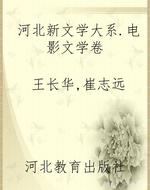 河北新文学大系.电
影文学卷
王长华,崔志远
河北教育出版社